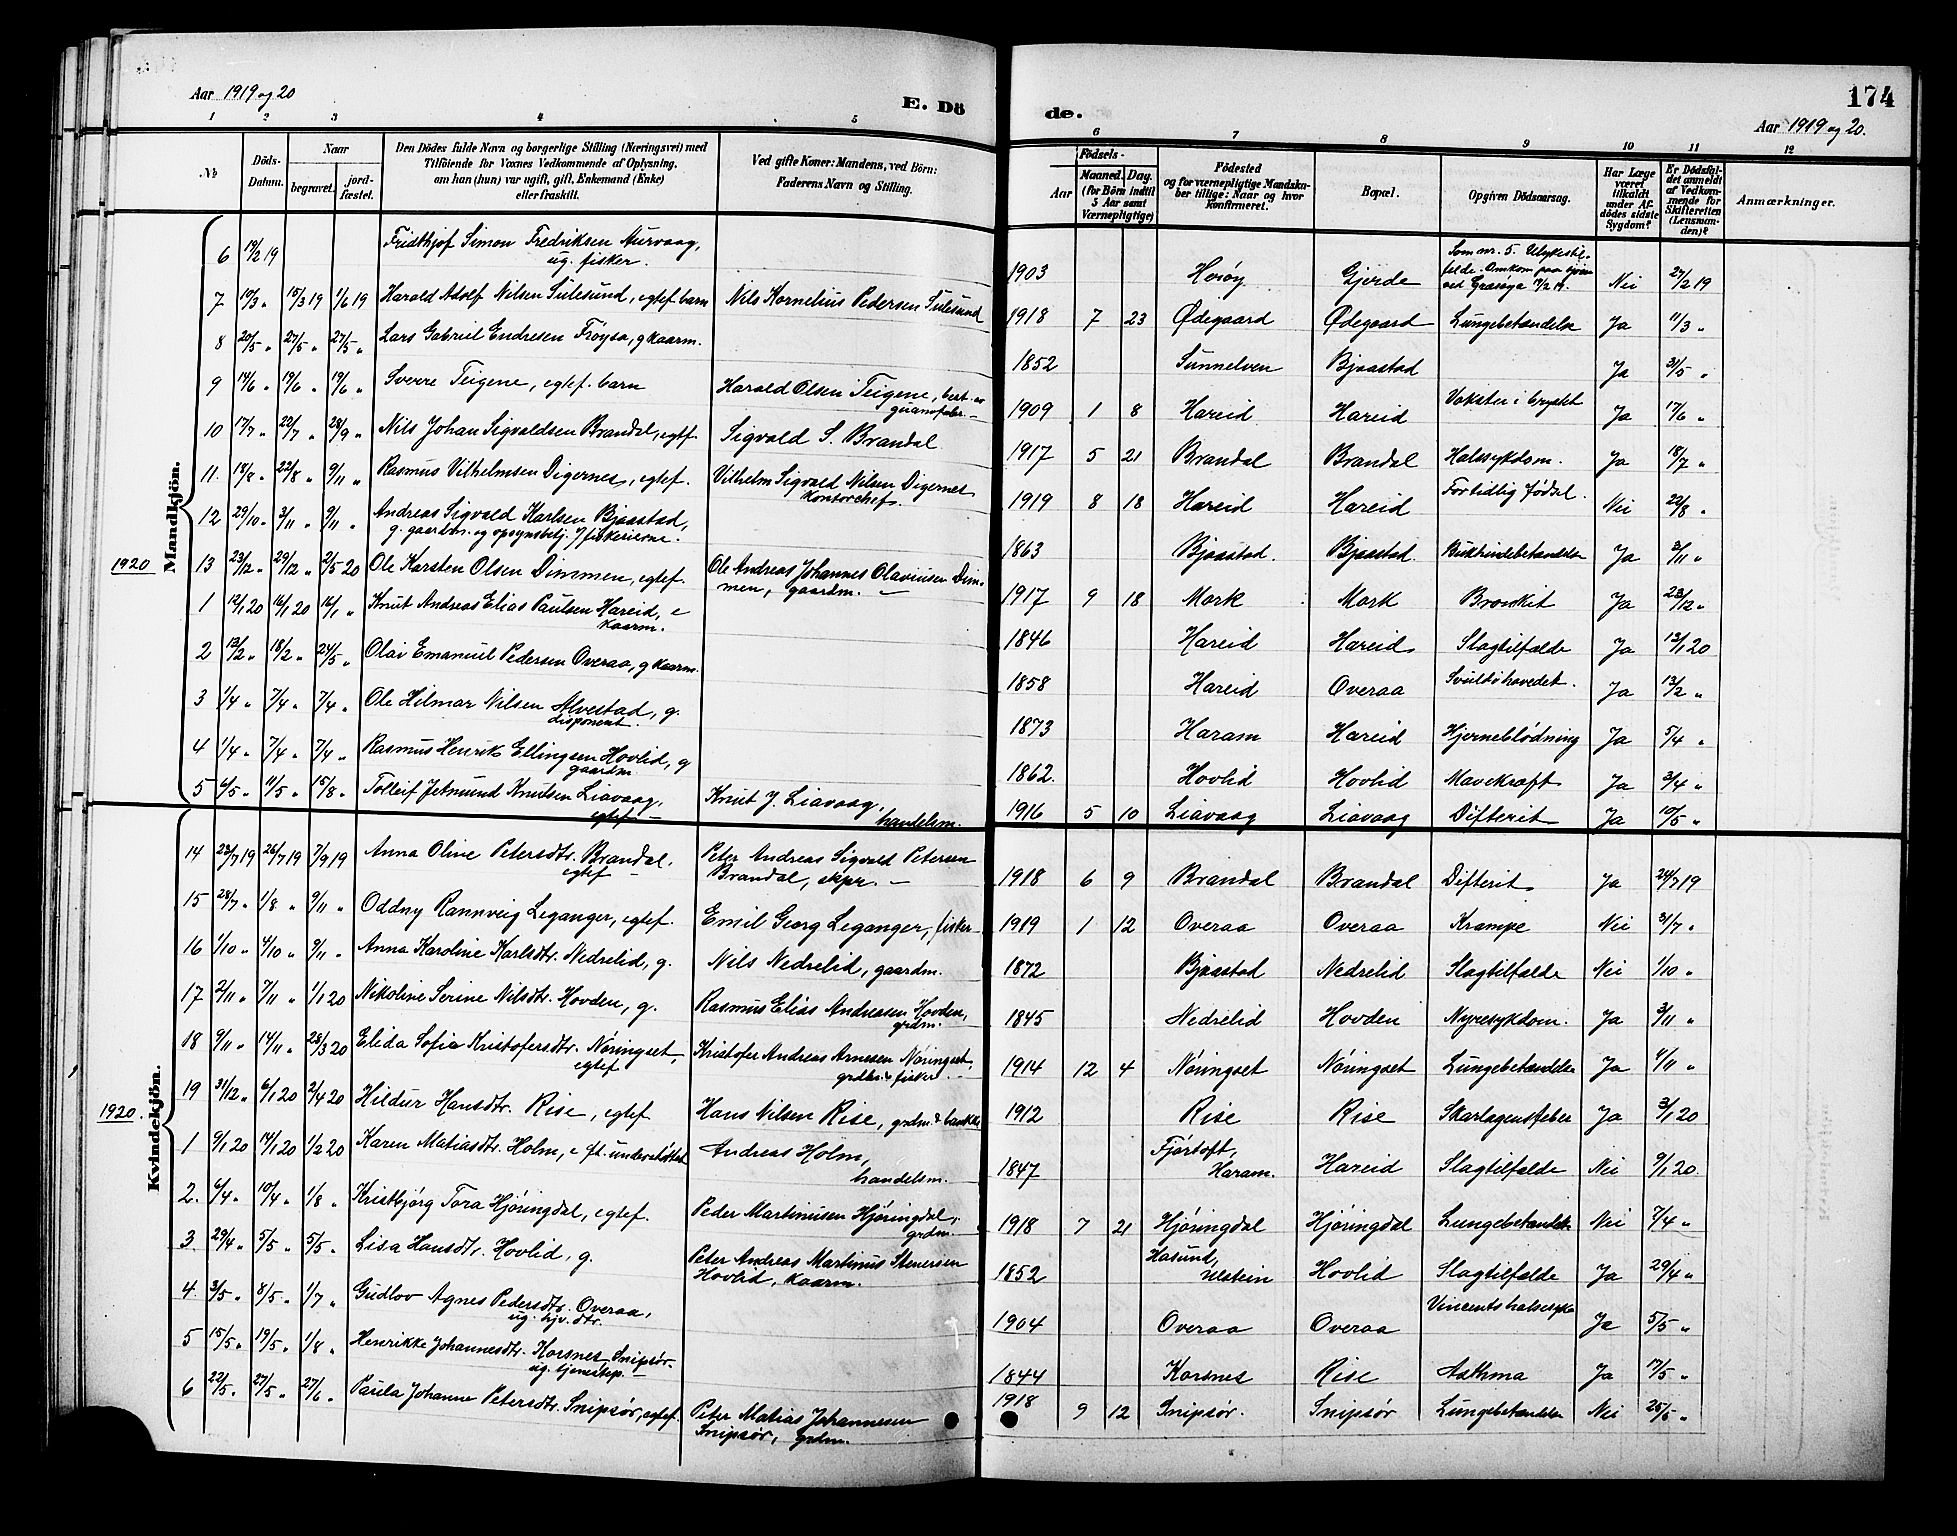 Aar 1919 og 20
E. Dö
de.
174
Aar 1919 og 20.
1 2 3 4 5 6 7 8 9 10 11 12
No
Döds-Datum.
Naar
begravet.
jord-fæstet.
Den Dödes fulde Navn og borgerlige Stilling (Næringsvei) med
Tilföiende for Voxnes Vedkommende af Oplysning,
om han (hun) var ugift, gift, Enkemand (Enke)
eller fraskilt.
Ved gifte Koner: Mandens, ved Börn:
Faderens Navn og Stilling.
Födsels-
Aar
Maaned. Dag.
(for Börn indtil
5 Aar samt
Værnepligtige)
Födested
og for værnepligtige Mandska-
ber tillige: Naar og hvor
konfirmeret.
Bopæl.
Opgiven Dödsaarsag.
Har Læge
været
tilkaldt
under Af-
dödes sidste
Sygdom?
Er Dödsfal-
det anmeldt
af Vedkom-
mende for
Skifteretten
(Lensman-
den)?
Anmærkninger.
Mandkjön.
6 19/2 19 Fridthjof Simon Fredriksen Aurvaag, ug. fisker. 1903 Herøy Gjerde Som nr. 5. Ulykestilfelde. Omkom paa ved Grasøya Nei 27/2 19
7 10/3 " 15/3 19 1/6 19 Harald Adolf Nilsen Sulesund, egtef. barn Nils Kornelius Pedersen Sulesund 1918 7 23 Ødegaard Ødegaard Lungebetændelse Ja 11/3 "
8 20/5 " 27/5 " 27/5 " Lars Gabriel Endresen Frøysa, g kaarm. 1852 Sunnelven Bjaastad Ja 31/5 "
9 14/6 " 19/6 " 19/6 " Sverre Teigene, egtef. barn Harald Olsen Teigene, 1909 1 8 Hareid Hareid Vokster i brystet Ja 17/6 "
10 17/7 " 22/7 " 28/9 " Nils Johan Sigvaldsen Brandal, egtf. Sigvald S. Brandal 1917 5 21 Brandal Brandal Halssykdom. Ja 18/7 "
11. 18/8 " 22/8 " 9/11 " Rasmus Vilhelmsen Digernes, egtef. Vilhelm Sigvald Nilsen Digernes kontorchef. 1919 8 18 Hareid Hareid For tidlig fødsel. Nei 22/8 "
12 29/10 " 3/11 " 9/11 " Andreas Sigvald Karlsen Bjaastad, g. gaardm. og opsynsbetj. v/ fiskerierne. 1863 Bjaastad. Bjaastad. Bukhindebetændelse Ja 3/11 "
13 23/12 " 29/12 " 2/5 20 Ole Karsten Olsen Dimmen, egtef. Ole Andreas Johannes Olaviusen Dimmen, gaardm. 1917 9 18 Mork Mork Bronkit Ja 23/12 "
1920
1 12/1 20 16/1 20 16/1 " Knut Andreas Elias Paulsen Hareid, e kaarm. 1846 Hareid Hareid Slagtilfælde Ja 13/1 20
2 13/2 " 18/2 " 24/5 " Olav Emanuel Pedersen Overaa, g kaarm. 1858 Hareid Overaa Svulst i hovedet. Ja 13/2 "
3 1/4 " 7/4 " 7/4 " Ole Hilmar Nilsen Alvestad, g. disponent. 1873 Haram Hareid Hjerneblødning Ja 5/4 "
4 1/4 " 7/4 " 7/4 " Rasmus Henrik Ellingsen Hovlid, g gaardm 1862. Hovlid Hovlid Mavekræft Ja 3/4 "
5 6/5 " 11/5 " 15/8 " Tolleif Jetmund Knutsen Liavaag, egtef Knut J. Liavaag, handelsm. 1916 5 10 Liavaag Liavaag Difterit Ja 10/5 "
Kvindekjön.
14 23/7 19 26/7 19 7/9 19 Anna Oline Petersdtr. Brandal, egtef Peter Andreas Sigvald Petersen Brandal, skpr. 1918 6 9 Brandal Brandal Difterit Ja 24/7 19
15 28/7 " 1/8 " 9/11 " Oddny Rannveig Leganger, egtef. Emil Georg Leganger, fisker 1919 1 12 Overaa Overaa Krampe Nei 31/7 "
16 1/10 " 4/10 " 9/11 " Anna Karoline Karlsdtr. Nedrelid, g. Nils Nedrelid, gaardm. 1872 Bjaastad Nedrelid Slagtilfælde Nei 1/10 "
17 2/11 " 7/11 " 1/1 20 Nikoline Serine Nilsdtr. Hovden, g. Rasmus Elias Andreasen Hovden, grdm. 1845 Nedrelid Hovden Nyresykdom. Ja 3/11 "
18 9/11 " 14/11 " 28/3 20 Elida Sofie Kristofersdtr. Nøringset, egtef Kristofer Andreas Arnesen Nøringset, grdbr. & fisker. 1914 12 4 Nøringset Nøringset Lungebetændelse Ja 11/11 "
19 31/12 " 6/1 20 2/4 20 Hildur Hansdtr. Rise, egtef Hans Nilsen Rise, grdm. & 1912 Rise Rise Skarlagensfeber Ja 3/1 20
1920.
1 9/1 20 14/1 20 1/2 20 Karen Matiasdtr. Holm, e ft. understøttet Andreas Holm, handelsm. 1847 Fjørtoft, Haram. Hareid Slagtilfælde Nei 9/1 20.
2. 6/4 " 10/4 " 1/8 " Kristbjørg Tora Hjøringdal, egtef. Peder Martinusen Hjøringdal, grdm. 1918 7 21 Hjøringdal Hjøringdal Lungebetændelse Nei 7/4 "
3. 29/4 " 5/5 " 5/5 " Lisa Hansdtr. Hovlid, g. Peter Andreas Martinus Stenersen Hovlid, kaarm. 1852 Hasund, Ulstein Hovlid Slagtilfælde Ja 29/4 "
4. 3/5 " 8/5 " 1/7 " Gudlov Agnes Pedersdtr. Overaa, ug. hjv. dtr. 1904 Overaa Overaa Vincents halssyke Ja 5/5 "
5 15/5 " 19/5 " 1/8 " Henrikke Johannesdtr. Korsnes Snipsør. ug. tjenestep. 1844 Korsnes Rise Asthma Ja 17/5 "
6 22/5 " 27/5 " 27/6 " Paula Johanne Petersdtr. Snipsør, egtef. Peter Matias Johannesen Snipsør, grdm. 1918 9 12 Snipsør. Snipsør Lungebetændelse Nei 25/5 "